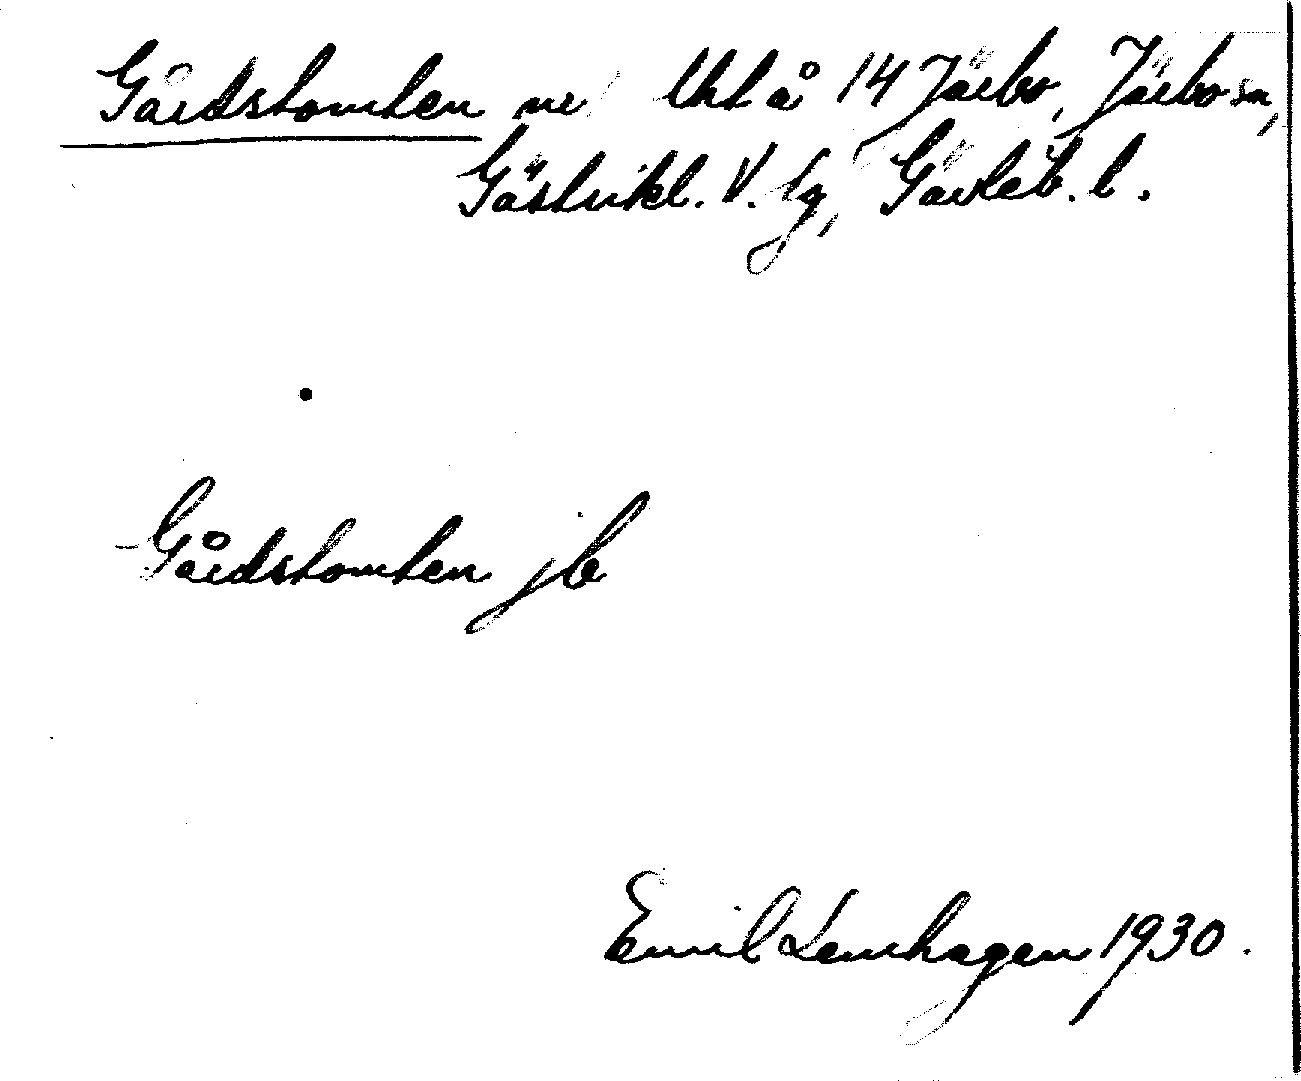 Gårdstomten nr Ultå 14 Järbo, Järbo sn,
Gästrikl. V. tg, Gävleb. l.
Gårdstomten jb
Emil Lenhagen 1930.